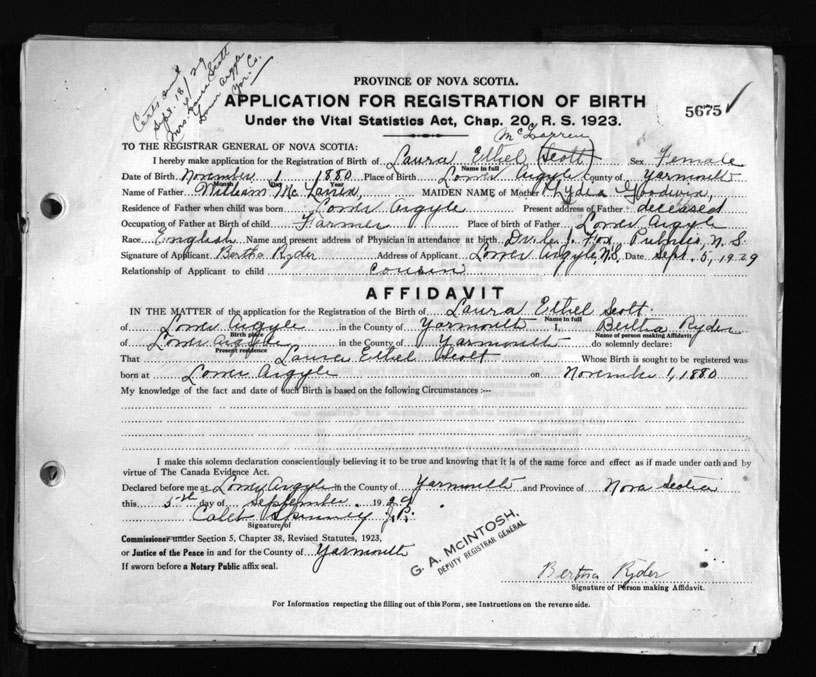 Certs sent
Sept. 18/29
Mrs Laura Scott
Lower Argyle
Yar. Co.
PROVINCE OF NOVA SCOTIA.
APPLICATION FOR REGISTRATION OF BIRTH
5675
Under the Vital Statistics Act, Chap. 20, R. S. 1923.
TO THE REGISTRAR GENERAL OF NOVA SCOTIA:
I hereby make application for the Registration of Birth of Laura Ethel (Scott) Sex Female
Name in full
Date of Birth November 1 1880 Place of Birth Lower Argyle County of Yarmouth
Month Day Year
Name of Father William Mc Laren, MAIDEN NAME of Mother Lydia Goodwin,
Residence of Father when child was born Lower Argyle Present address of Father deceased
Occupation of Father at Birth of child Farmer Place of birth of Father Lower Argyle
Race English Name and present address of Physician in attendance at birth J. Fox, Pubnico, N. S.
Signature of Applicant Bertha Ryder Address of Applicant Lower Argyle, N.S. Date Sept. 5, 1929
Relationship of Applicant to child cousin
AFFIDAVIT
IN THE MATTER of the application for the Registration of the Birth of Laura Ethel Scott
Name in full
of Lower Argyle in the County of Yarmouth I, Bertha Ryder
Birth place Name of person making Affidavit
of Lower Argyle in the County of Yarmouth do solemnly declare:
Present residence
That Laura Ethel Scott Whose Birth is sought to be registered was
born at Lower Argyle on November 1, 1880
My knowledge of the fact and date of such Birth is based on the following Circumstances :---
I make this solemn declaration conscientiously believing it to be true and knowing that it is of the same force and effect as if made under oath and by
virtue of The Canada Evidence Act.
Declared before me at Lower Argyle in the County of Yarmouth and Province of Nova Scotia
this 5th day of September 1929
Caleb Spinney J.P.
Signature of
Commissioner under Section 5, Chapter 38, Revised Statutes, 1923,
or Justice of the Peace in and for the County of Yarmouth
If sworn before a Notary Public affix seal.
G. A. McINTOSH,
DEPUTY REGISTRAR GENERAL
Bertha Ryder
Signature of Person making Affidavit.
For Information respecting the filling out of this Form, see Instructions on the reverse side.